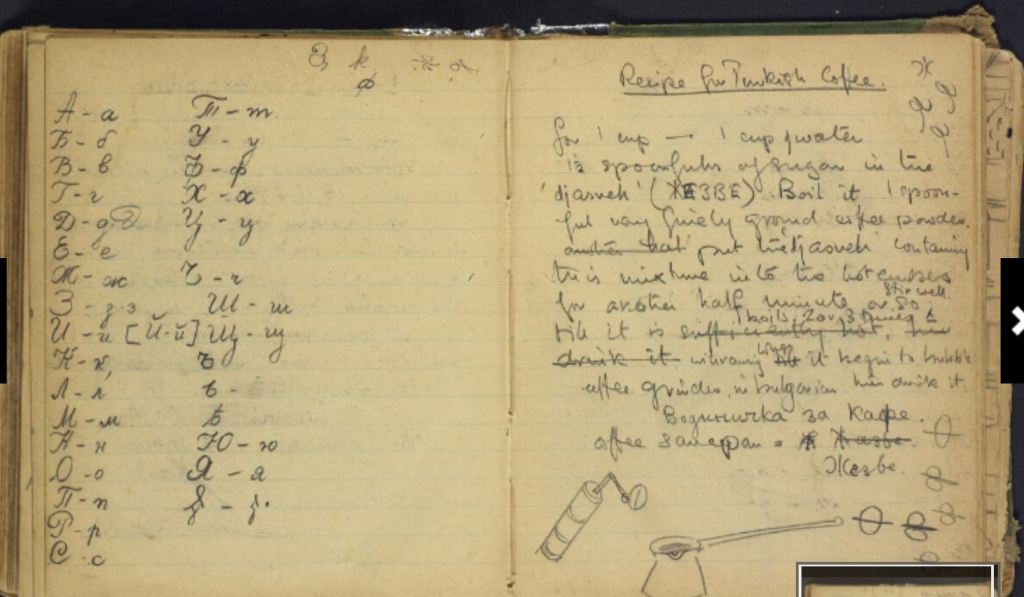 З к
ф
А - а
Б - б
В - в
Г - г
Д - д
Е - е
Ж - ж
З - з · з
И - и [Й - й]
К - к
Л - л
М - м
Н - н
О - о
П - п
Р - р
С - с
Т - т
У - у
Ф - ф
Х - х
Ц - ц
Ч - ч
Ш - ш
Щ - щ
Ъ
Ь -
Ѣ
Ю - ю
Я - я
Recipe for Turkish Coffee.
ж
for 1 cup — 1 cup of water
1½ spoonfuls of sugar in the
'djasveh' (ЖЕЗВЕ). Boil it 1 spoon-
ful very finely ground coffee powder.
another half put the djasveh containing
this mixture into the hot
for another half minute or so
stir well
till it is sufficiently hot, then
boils 2 or 3 times &
drink it. when it begins to bubble
coffee grinder, in bulgarian then drink it.
за кафе.
coffee = Ж Жазве.
Жезве.
ф
ф